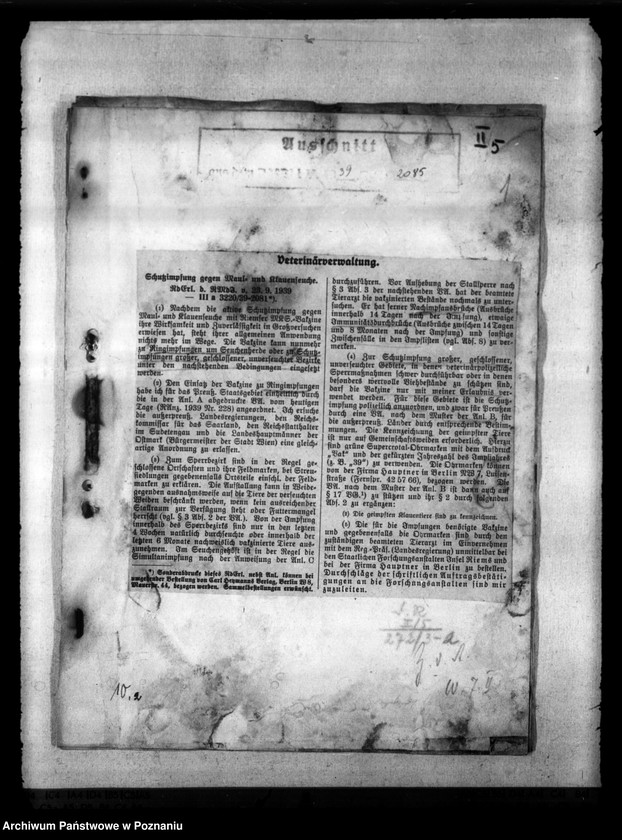 Ausschnitt
39
2085
II 5
1
Veterinärverwaltung.
Schutzimpfung gegen Maul- und Klauenseuche.
RdErl. d. RMdJ. v. 22. 9. 1939
— III a 3220/39-2081*).
(1) Nachdem die aktive Schutzimpfung gegen
Maul- und Klauenseuche mit Riemser MKS.-Vakzine
ihre Wirksamkeit und Zuverlässigkeit in Großversuchen
erwiesen hat, steht ihrer allgemeinen Anwendung
nichts mehr im Wege. Die Vakzine kann nunmehr
zu Ringimpfungen um Seuchenherde oder zu Schutz-
impfungen großer, geschlossener, unverseuchter Bezirke
unter den nachstehenden Bedingungen eingesetzt
werden.
(2) Den Einsatz der Vakzine zu Ringimpfungen
habe ich für das Preuß. Staatsgebiet einheitlich durch
die in der Anl. A abgedruckte VA. vom heutigen
Tage (RAnz. 1939 Nr. 228) angeordnet. Ich ersuche
die außerpreuß. Landesregierungen, den Reichs-
kommissar für das Saarland, den Reichsstatthalter
im Sudetengau und die Landeshauptmänner der
Ostmark (Bürgermeister der Stadt Wien) eine gleich-
artige Anordnung zu erlassen.
(3) Zum Sperrbezirk sind in der Regel ge-
schlossene Ortschaften und ihre Feldmarken, bei Streu-
siedlungen gegebenenfalls Ortsteile einschl. der Feld-
marken zu erklären. Die Aufstallung kann in Weide-
gegenden ausnahmsweise auf die Tiere der verseuchten
Weiden beschränkt werden, wenn kein ausreichender
Stallraum zur Verfügung steht oder Futtermangel
herrscht (vgl. § 3 Abs. 2 der VA.). Von der Impfung
innerhalb des Sperrbezirks sind nur in den letzten
4 Wochen natürlich durchseuchte oder innerhalb der
letzten 6 Monate nachweislich vakzinierte Tiere aus-
zunehmen. Im Seuchengehöft ist in der Regel die
Simultanimpfung nach der Anweisung der Anl. C
*) Sonderabdrucke dieses RdErl. nebst Anl. können bei
umgehender Bestellung von Carl Heymanns Verlag, Berlin W 8,
Mauerstr. 44, bezogen werden. Sammelbestellungen erwünscht.
durchzuführen. Vor Aufhebung der Stallsperre nach
§ 3 Abs. 3 der nachstehenden VA. hat der beamtete
Tierarzt die vakzinierten Bestände nochmals zu unter-
suchen. Er hat ferner Nachimpfausbrüche (Ausbrüche
innerhalb 14 Tagen nach der Impfung), etwaige
Immunitätsdurchbrüche (Ausbrüche zwischen 14 Tagen
und 8 Monaten nach der Impfung) und sonstige
Zwischenfälle in den Impflisten (vgl. Abs. 8) zu ver-
merken.
(4) Zur Schutzimpfung großer, geschlossener,
unverseuchter Gebiete, in denen veterinärpolizeiliche
Sperrmaßnahmen schwer durchführbar oder in denen
besonders wertvolle Viehbestände zu schützen sind,
darf die Vakzine nur mit meiner Erlaubnis ver-
wendet werden. Für diese Gebiete ist die Schutz-
impfung polizeilich anzuordnen, und zwar für Preußen
durch eine VA. nach dem Muster der Anl. B, für
die außerpreuß. Länder durch entsprechende Bestim-
mungen. Die Kennzeichnung der geimpften Tiere
ist nur auf Gemeinschaftsweiden erforderlich. Hierzu
sind grüne Superroval-Ohrmarken mit dem Aufdruck
„Vak“ und der gekürzten Jahreszahl des Impfjahres
(z. B. „39“) zu verwenden. Die Ohrmarken können
von der Firma Hauptner in Berlin NW 7, Luisen-
straße (Fernspr. 42 57 66), bezogen werden. Die
VA. nach dem Muster der Anl. B ist dann auch auf
§ 17 VG.¹) zu stützen und ihr § 2 durch folgenden
Abs. 2 zu ergänzen:
(2) Die geimpften Klauentiere sind zu kennzeichnen.
(5) Die für die Impfungen benötigte Vakzine
und gegebenenfalls die Ohrmarken sind durch den
zuständigen beamteten Tierarzt im Einvernehmen
mit dem Reg.-Präs. (Landesregierung) unmittelbar bei
den Staatlichen Forschungsanstalten Insel Riems und
bei der Firma Hauptner in Berlin zu bestellen.
Durchschläge der schriftlichen Auftragsbestäti-
gungen an die Forschungsanstalten sind mir
zuzuleiten.
I/5
272/3-a
Z. d. A.
10.2